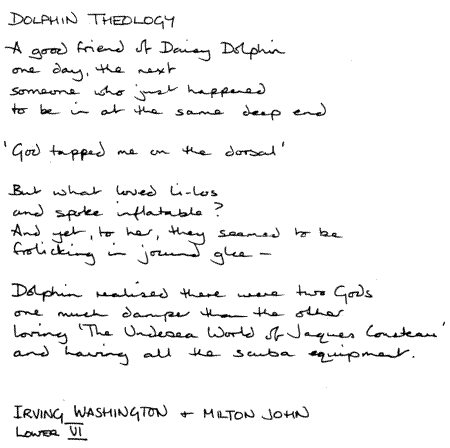 DOLPHIN THEOLOGY
A good friend of Daisy Dolphin
one day, the next
someone who just happened
to be in at the same deep end
'God tapped me on the dorsal'
But what loved li-los
and spoke inflatable?
And yet, to her, they seemed to be
frolicking in jocund glee -
Dolphin realised there were two Gods
one much damper than the other
loving 'The Undesea World of Jaques Cousteau'
and having all the scuba equipment.
IRVING WASHINGTON + MILTON JOHN
LOWER VI